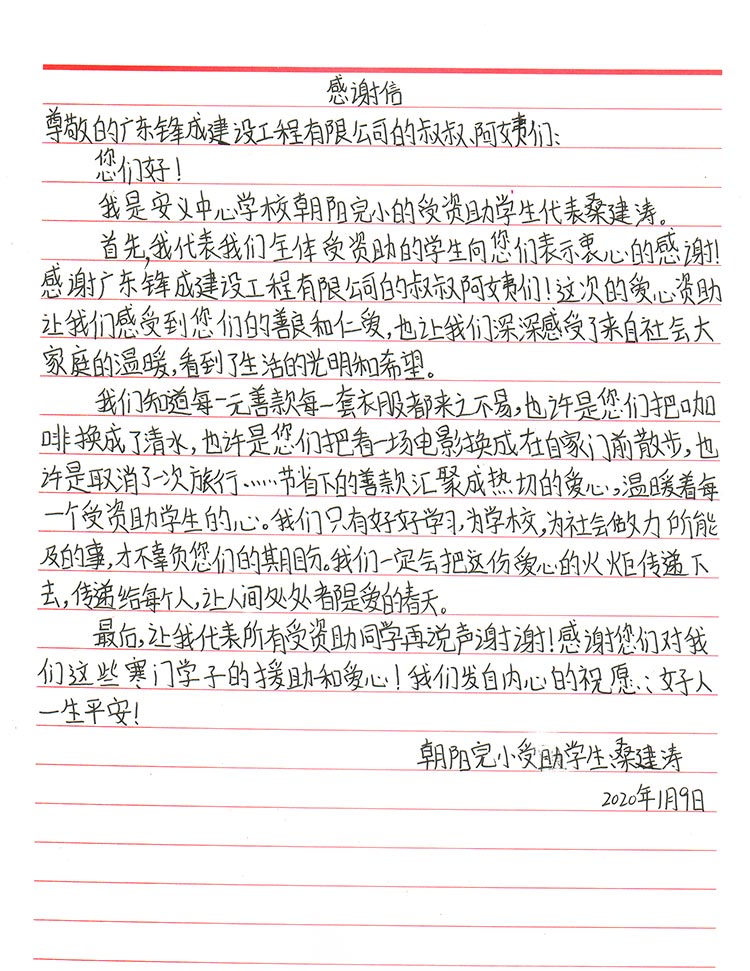 感谢信
尊敬的广东锋成建设工程有限公司的叔叔、阿姨们:
您们好!
我是安义中心学校朝阳完小的受资助学生代表桑建涛。
首先,我代表我们全体受资助的学生向您们表示衷心的感谢!
感谢广东锋成建设工程有限公司的叔叔阿姨们!这次的爱心资助
让我们感受到您们的善良和仁爱,也让我们深深感受了来自社会大
家庭的温暖,看到了生活的光明和希望。
我们知道每一元善款每一套衣服都来之不易,也许是您们把咖
啡换成了清水,也许是您们把看一场电影换成在自家门前散步,也
许是取消了一次旅行……节省下的善款汇聚成热切的爱心,温暖着每
一个受资助学生的心。我们只有好好学习,为学校,为社会做力所能
及的事,才不辜负您们的期盼。我们一定会把这份爱心的火炬传递下
去,传递给每个人,让人间处处都是爱的春天。
最后,让我代表所有受资助同学再说声谢谢!感谢您们对我
们这些寒门学子的援助和爱心!我们发自内心的祝愿:好人
一生平安!
朝阳完小受助学生:桑建涛
2020年1月9日